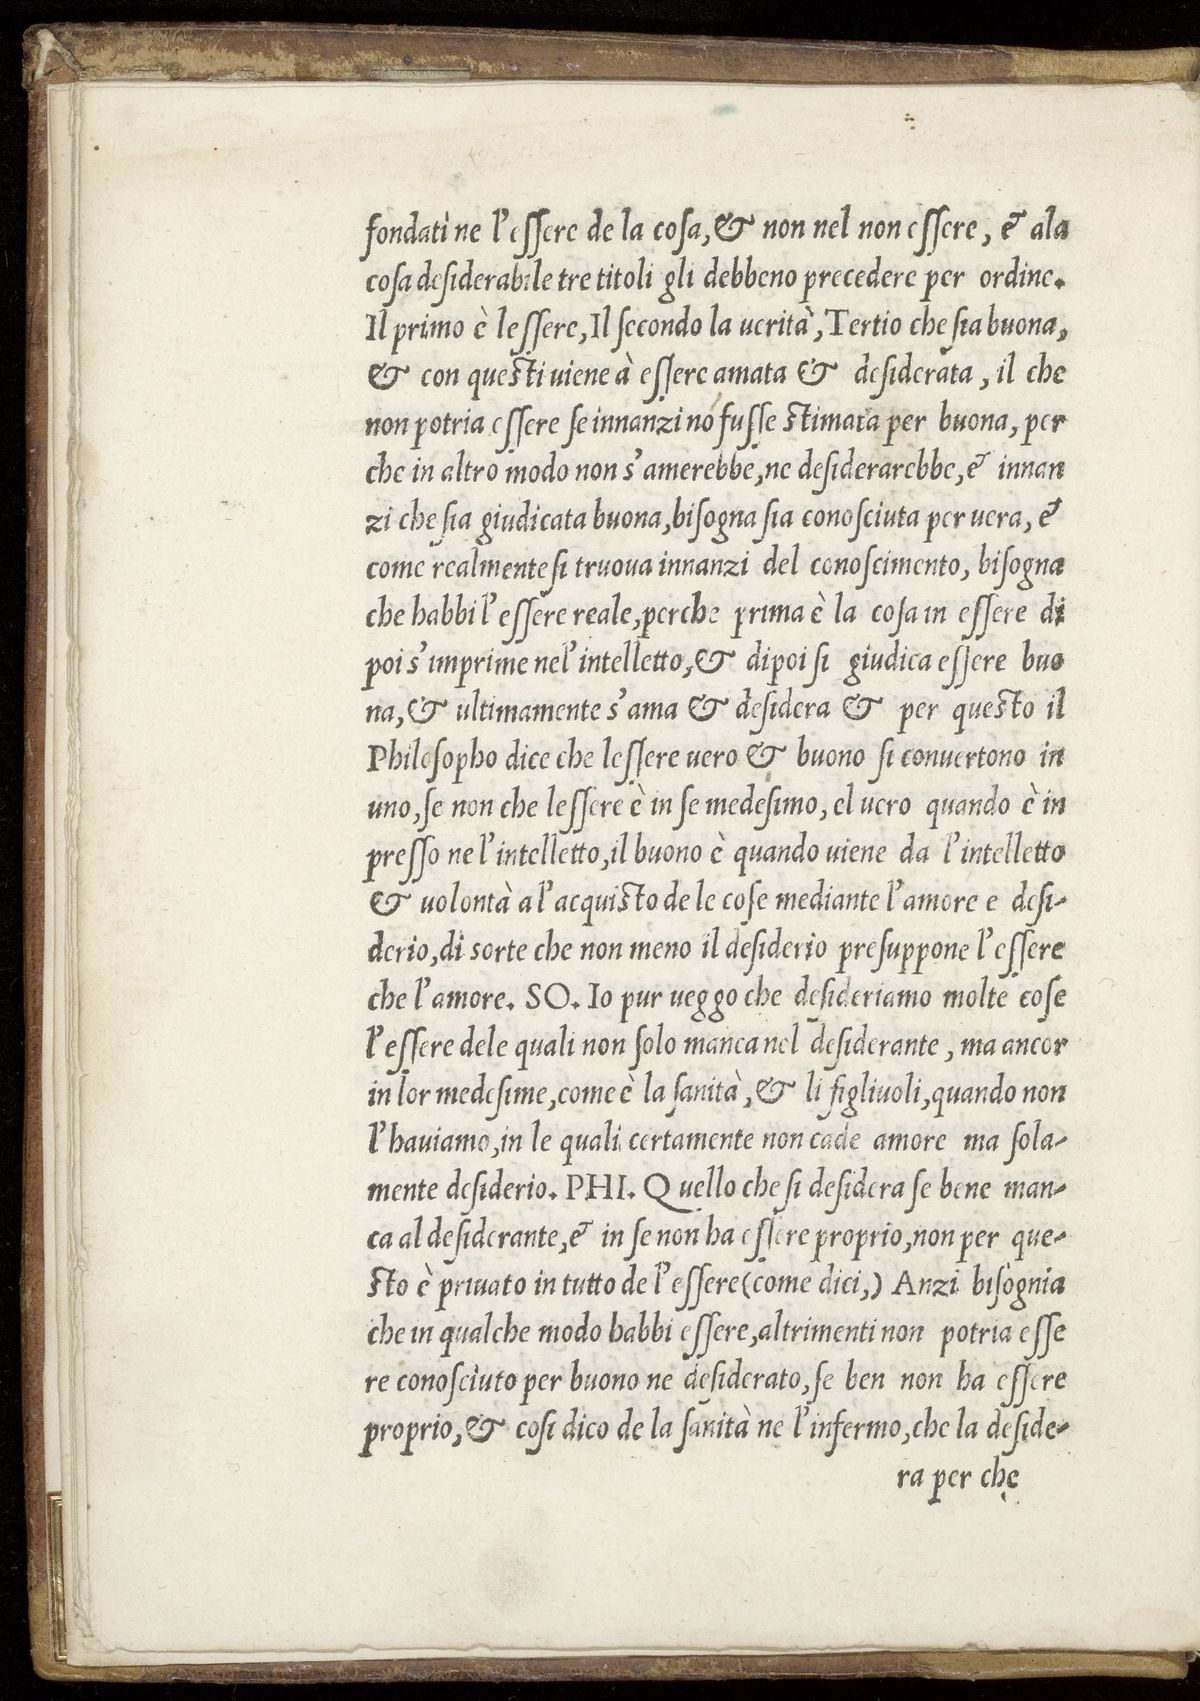 fondati ne l'eſſere de la coſa,& non nel non eſſere, & ala
coſa deſiderabile tre titoli gli debbeno precedere per ordine.
Il primo è leſſere,Il ſecondo la uerità,Tertio che ſia buona,
& con queſti uiene à eſſere amata & deſiderata, il che
non potria eſſere ſe innanzi nó fuſſe ſtimata per buona, per
che in altro modo non s'amerebbe,ne deſiderarebbe,& innan
zi che ſia giudicata buona,biſogna ſia conoſciuta per uera, &
come realmente ſi truoua innanzi del conoſcimento, biſogna
che habbi l'eſſere reale,perche prima è la coſa in eſſere di
poi s'imprime nel'intelletto,& dipoi ſi giudica eſſere buo
na,& ultimamente s'ama & deſidera & per queſto il
Philoſopho dice che leſſere uero & buono ſi conuertono in
uno,ſe non che leſſere è in ſe medeſimo, el uero quando è in
preſſo ne l'intelletto,il buono è quando uiene da l'intelletto
& uolontà a l'acquiſto de le coſe mediante l'amore e deſi-
derio,di sorte che non meno il deſiderio preſuppone l'eſſere
che l'amore. SO. Io pur ueggo che deſideriamo molte coſe
l'eſſere dele quali non ſolo manca nel deſiderante, ma ancor
in lor medeſime,come è la ſanità,& li figliuoli,quando non
l'hauiamo,in le quali certamente non cade amore ma ſola-
mente deſiderio. PHI. Quello che ſi deſidera ſe bene man-
ca al deſiderante,& in ſe non ha eſſere proprio,non per que-
ſto è priuato in tutto de l'eſſere(come dici,) Anzi biſògnia
che in qualche modo habbi eſſere,altrimenti non potria eſſe
re conoſciuto per buono ne deſiderato,ſe ben non ha eſſere
proprio,& coſi dico de la ſanità ne l'infermo,che la deſide-
ra per che